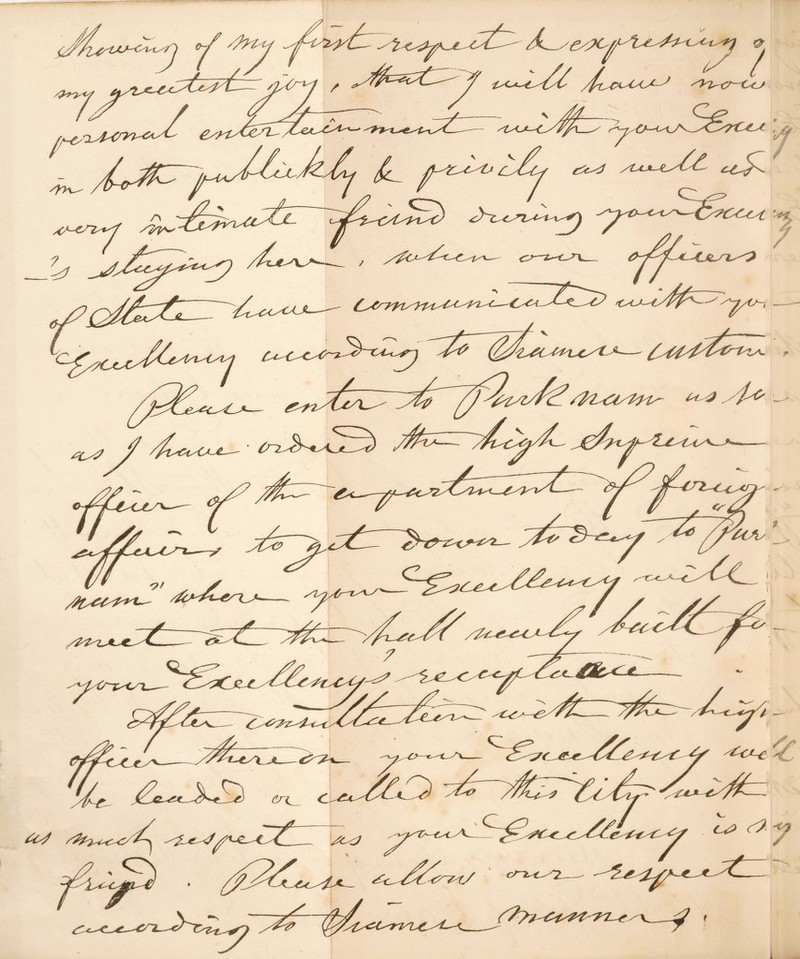 Showing of my first respect & expressing of
my greatest joy, that I will have now
personal entertainment with your Excellency
in both publickly & privily as well as
very intimate friend during your Excellency
's staying here, when our officers
of State have communicated with your
Excellency according to Siamese custom.
Please enter to Parknam as
as I have ordered the high Supreme
officer of the apartment of
affairs to get down today to
nam" where your Excellency will
meet at the hall newly built
your Excellency's
After consultation with the high
officer thereon your Excellency will
be leaded or called to this City with
as much respect as your Excellency is my
friend. Please allow our respect
according to Siamese manners.